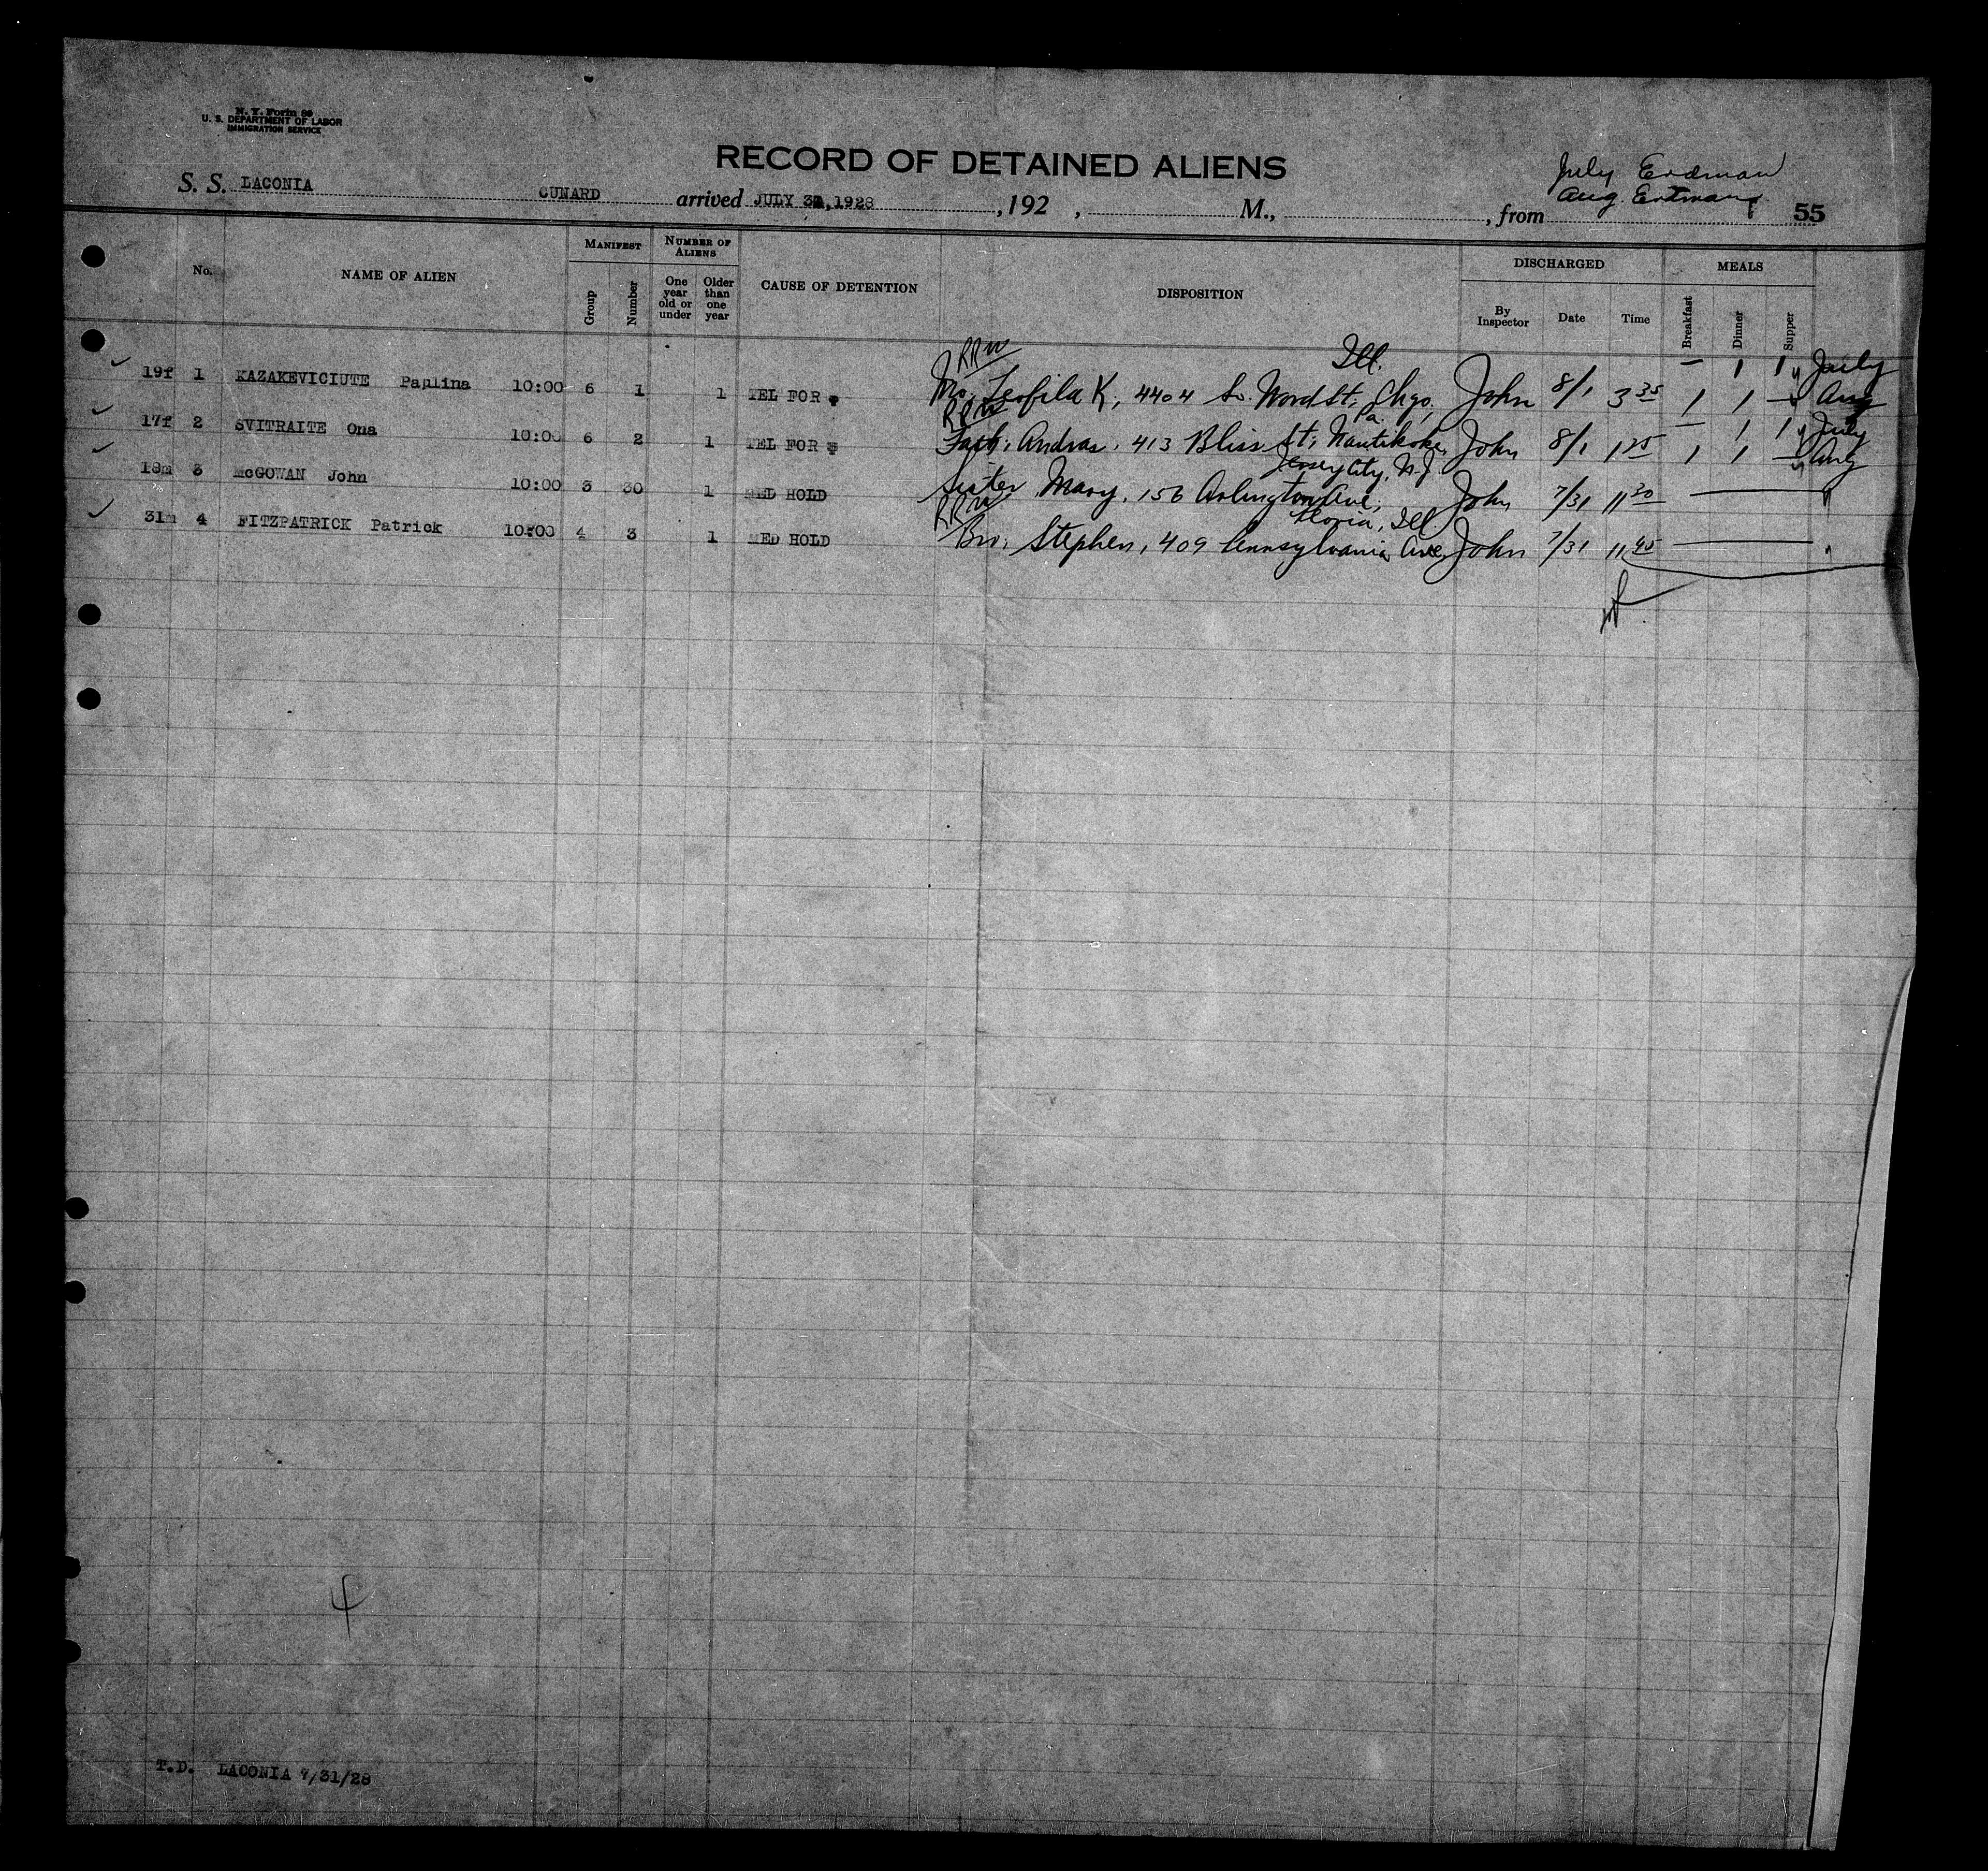 N. Y. Form 86
U. S. DEPARTMENT OF LABOR
IMMIGRATION SERVICE
RECORD OF DETAINED ALIENS
July Erdman
Aug. Erdman
S. S. LACONIA CUNARD arrived JULY 31,1928 ,192 , M., , from 55
No. NAME OF ALIEN MANIFEST Group Number NUMBER OF ALIENS One year old or under Older than one year CAUSE OF DETENTION DISPOSITION DISCHARGED By Inspector Date Time MEALS Breakfast Dinner Supper
RRW Ill. — 1 1 July
19f 1 KAZAKEVICIUTE Paulina 10:00 6 1 1 TEL FOR Mo, Teofila K, 4404 So. Wood St, Chgo, John 8/1 3 35 1 1 — Aug
RRW Pa. — 1 1 July
17f 2 SVITRAITE Ona 10:00 6 2 1 TEL FOR Fath, Andras, 413 Bliss St, Nantikoke John 8/1 1 25 1 1 — Aug
Jersey City, N.J.
18m 3 McGOWAN John 10:00 3 30 1 MED HOLD Sister Mary, 156 Arlington Ave, John 7/31 11 20
RRW Peoria, Ill
31m 4 FITZPATRICK Patrick 10:00 4 3 1 MED HOLD Bro, Stephen, 409 Pennsylvania Ave John 7/31 11 45
4
T.D. LACONIA 7/31/28